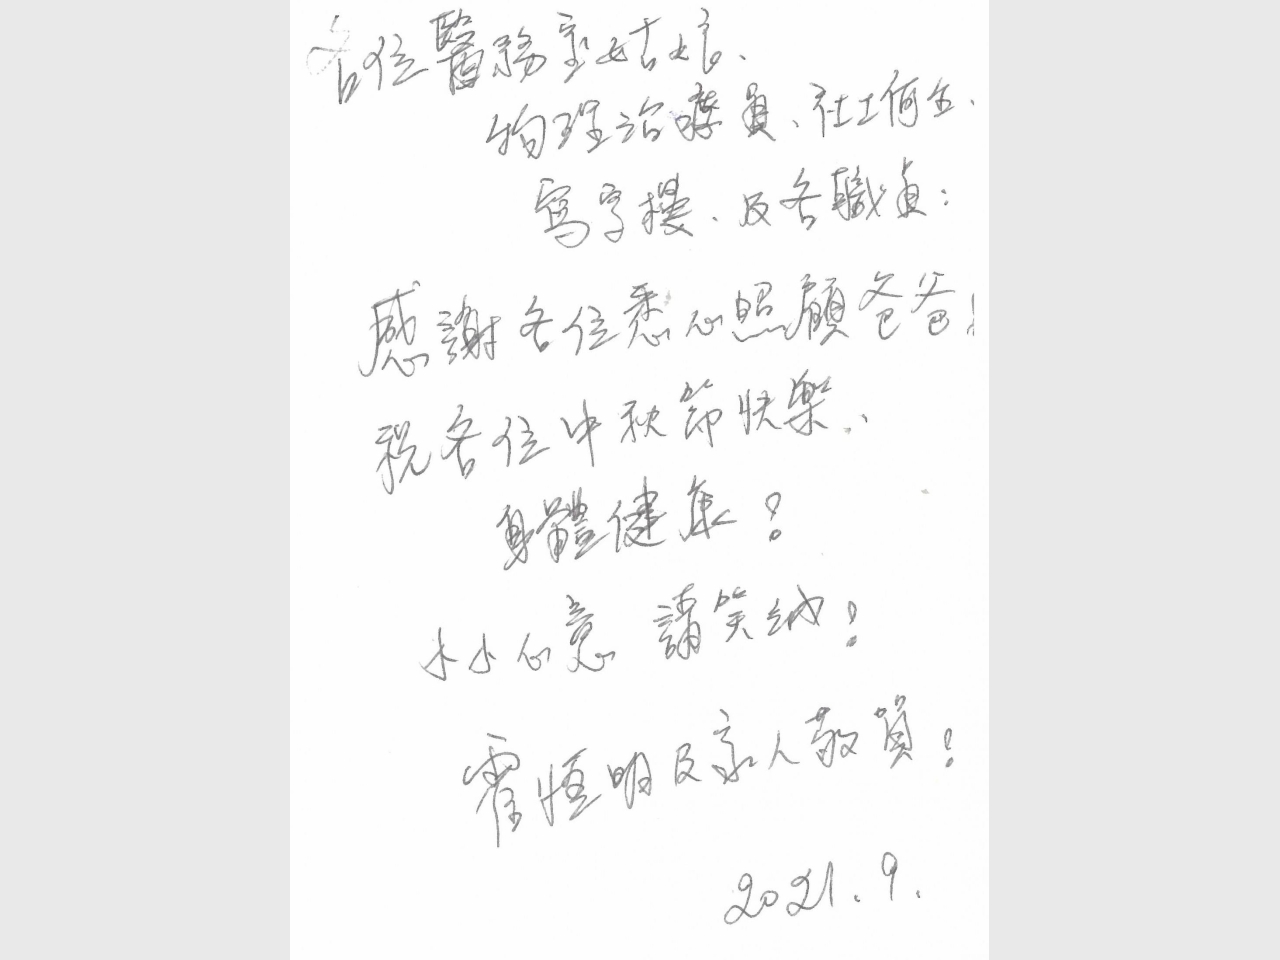 各位醫務室姑娘、
物理治療員、社工何生、
寫字樓、及各職員：
感謝各位悉心照顧爸爸！
祝各位中秋節快樂、
身體健康！
小小心意 請笑納！
霍恆明及家人敬賀！
2021.9.